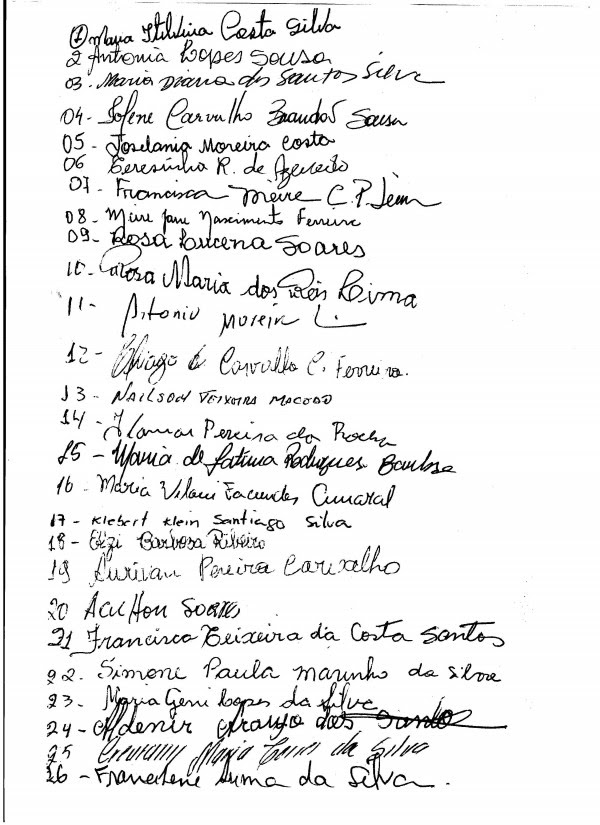 1 Maria Costa Silva
2 Antonia Lopes Sousa
03- Maria Diana dos Santos Silva
04- Carvalho Brandão Sousa
05- Joselania Moreira Costa
06 Teresinha R. de Azevedo
07- Francisca Meire C. P.
08- Meire Jane Nascimento Ferreira
09- Rosa Lucena Soares
10- Rosa Maria dos Reis Lima
11- Antonio Moreir L.
12- Thiago C. Ferreira.
13- Nailson Teixeira Macedo
14- Ilamar Pereira da Rocha
15- Maria de Fatima Rodrigues Barbosa
16- Maria Vilani Facundes Amaral
17- Klebert Klein Santiago Silva
18- Elizi Barbosa Ribeiro
19 Lurivan Pereira Carvalho
20 Soares
21 Francisco Teixeira da Costa Santos
22- Simone Paula Marinho da Silva
23- Maria Geni Lopes da Silva
24- Aldenir Araujo dos Santos
25 Maria da Silva
26- Lima da Silva.